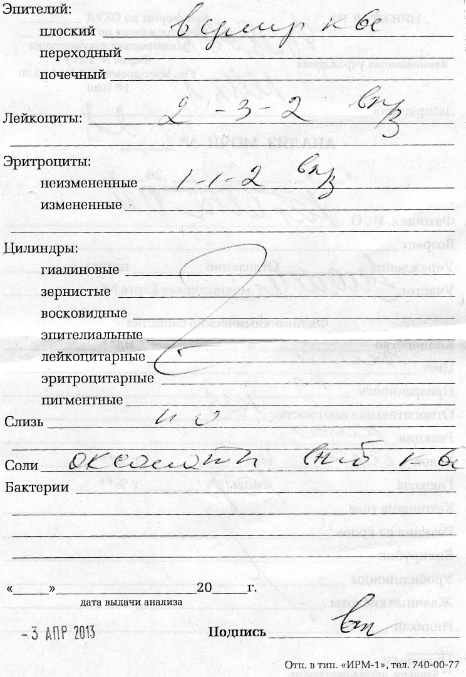 Эпителий:
плоский в умер к-ве
переходный
почечный
Лейкоциты: 2-3-2 в п/з
Эритроциты:
неизмененные 1-1-2 в п/з
измененные
Цилиндры:
гиалиновые
зернистые
восковидные
эпителиальные
лейкоцитарные
эритроцитарные
пигментные
Слизь
Соли оксалаты
Бактерии
«____»____________20____г.
дата выдачи анализа
-3 АПР 2013
Подпись
Отп. в тип. «ИРМ-1», тел. 740-00-77